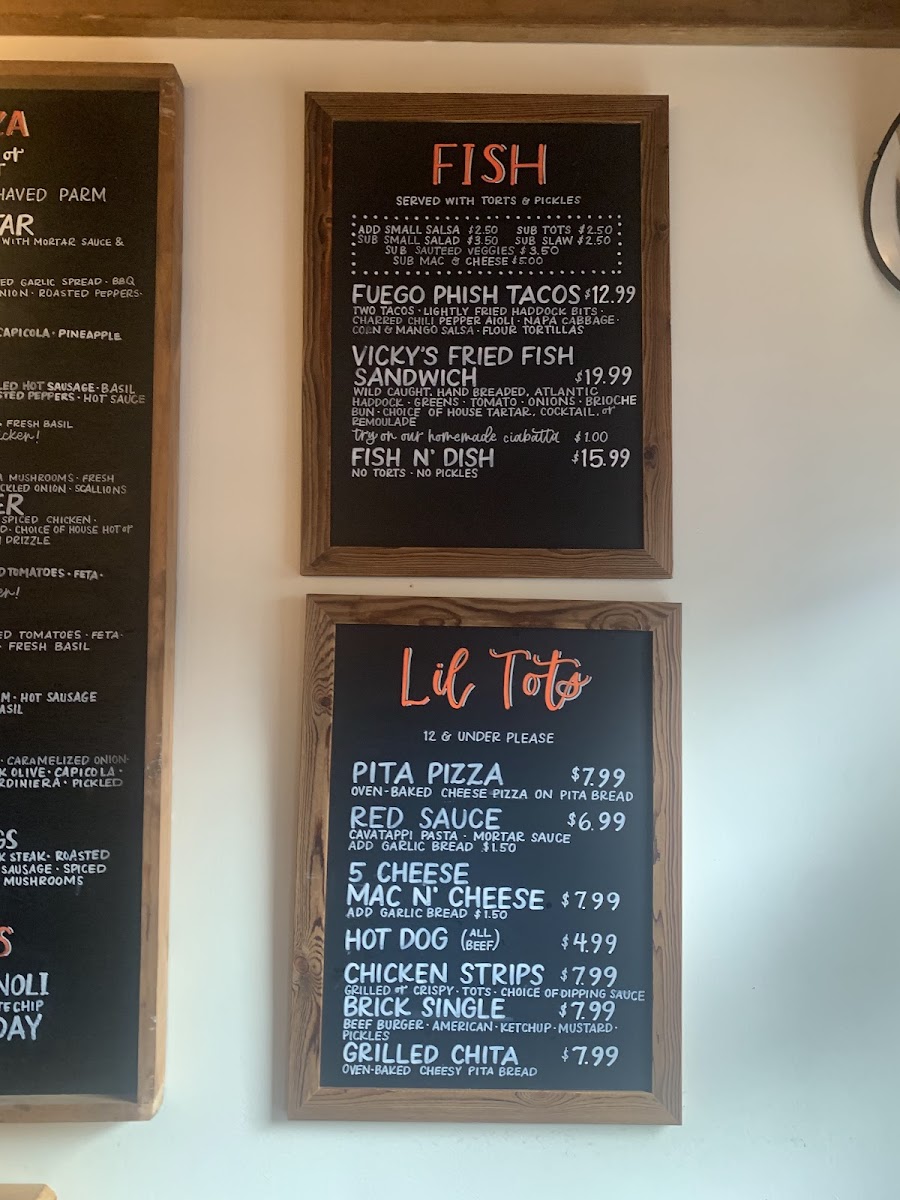 ZA
or
HAVED PARM
TAR
WITH MORTAR SAUCE &
ED GARLIC SPREAD · BBQ
NION · ROASTED PEPPERS ·
CAPICOLA · PINEAPPLE
LED HOT SAUSAGE · BASIL
STED PEPPERS · HOT SAUCE
· FRESH BASIL
icken!
MUSHROOMS · FRESH
CKLED ONION · SCALLIONS
ER
SPICED CHICKEN ·
D · CHOICE OF HOUSE HOT or
DRIZZLE
D TOMATOES · FETA ·
en!
ED TOMATOES · FETA ·
· FRESH BASIL
M · HOT SAUSAGE
ASIL
· CARAMELIZED ONION ·
K OLIVE · CAPICOLA ·
RDINIERA · PICKLED
GS
K STEAK · ROASTED
SAUSAGE · SPICED
MUSHROOMS
S
NOLI
TE CHIP
DAY
FISH
SERVED WITH TORTS & PICKLES
ADD SMALL SALSA $2.50 SUB TOTS $2.50
SUB SMALL SALAD $3.50 SUB SLAW $2.50
SUB SAUTEED VEGGIES $3.50
SUB MAC & CHEESE $5.00
FUEGO PHISH TACOS $12.99
TWO TACOS · LIGHTLY FRIED HADDOCK BITS ·
CHARRED CHILI PEPPER AIOLI · NAPA CABBAGE ·
CORN & MANGO SALSA · FLOUR TORTILLAS
VICKY'S FRIED FISH
SANDWICH $19.99
WILD CAUGHT, HAND BREADED, ATLANTIC
HADDOCK · GREENS · TOMATO · ONIONS · BRIOCHE
BUN · CHOICE OF HOUSE TARTAR, COCKTAIL, or
REMOULADE
try on our homemade ciabatta $1.00
FISH N' DISH $15.99
NO TORTS · NO PICKLES
Lil Tots
12 & UNDER PLEASE
PITA PIZZA $7.99
OVEN-BAKED CHEESE PIZZA ON PITA BREAD
RED SAUCE $6.99
CAVATAPPI PASTA · MORTAR SAUCE
ADD GARLIC BREAD $1.50
5 CHEESE
MAC N' CHEESE $7.99
ADD GARLIC BREAD $1.50
HOT DOG (ALL BEEF) $4.99
CHICKEN STRIPS $7.99
GRILLED or CRISPY · TOTS · CHOICE OF DIPPING SAUCE
BRICK SINGLE $7.99
BEEF BURGER · AMERICAN · KETCHUP · MUSTARD ·
PICKLES
GRILLED CHITA $7.99
OVEN-BAKED CHEESY PITA BREAD